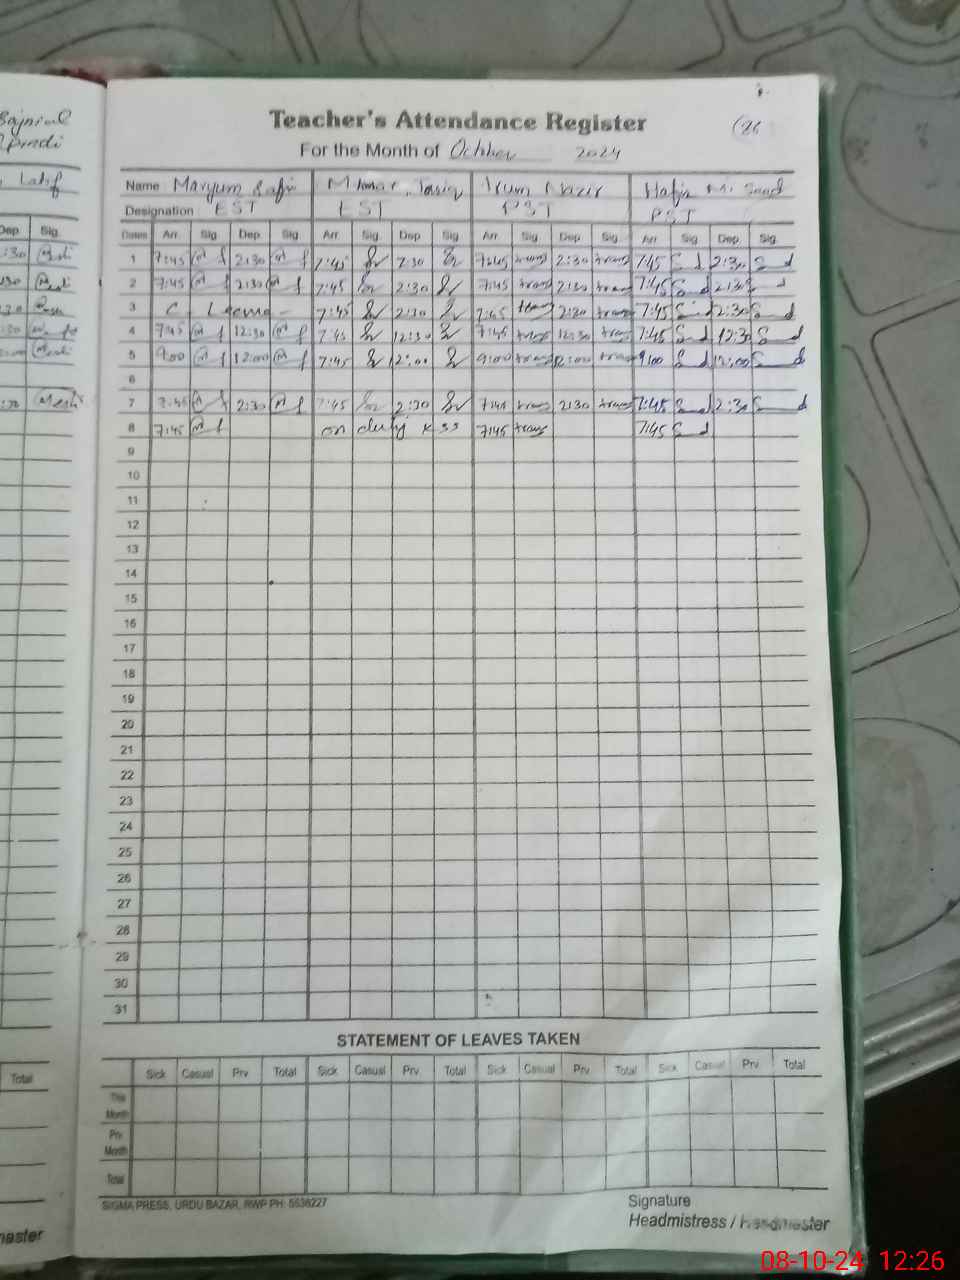 Latif
Dep Sig.
Total
Teacher's Attendance Register
(26
For the Month of October 2024
Name Maryum M. Umar Tariq Irum Nazir Hafiz M. Saad
Designation EST EST PST PST
Dates Arr. Sig. Dep Sig. Arr. Sig. Dep Sig. Arr. Sig. Dep Sig. Arr Sig. Dep. Sig.
1 7:45 2:30 7:45 2:30 7:45 2:30 7:45 2:30
2 7:45 2:30 7:45 2:30 7:45 2:30 7:45 2:30
3 C. Leave 7:45 2:30 7:45 2:30 7:45 2:30
4 7:45 12:30 7:45 12:30 7:45 12:30 7:45 12:30
5 9:00 12:00 7:45 12:00 9:00 12:00 9:00 12:00
6
7 7:45 2:30 7:45 2:30 7:45 2:30 7:45 2:30
8 7:45 on duty 7:45 7:45
9
10
11
12
13
14
15
16
17
18
19
20
21
22
23
24
25
26
27
28
29
30
31
STATEMENT OF LEAVES TAKEN
Sick Casual Prv Total Sick Casual Prv. Total Sick Casual Prv. Total Sick Casual Prv. Total
This Month
Prv. Month
Total
SIGMA PRESS, URDU BAZAR, RWP PH: 5536227
Signature
Headmistress / Headmaster
08-10-24 12:26